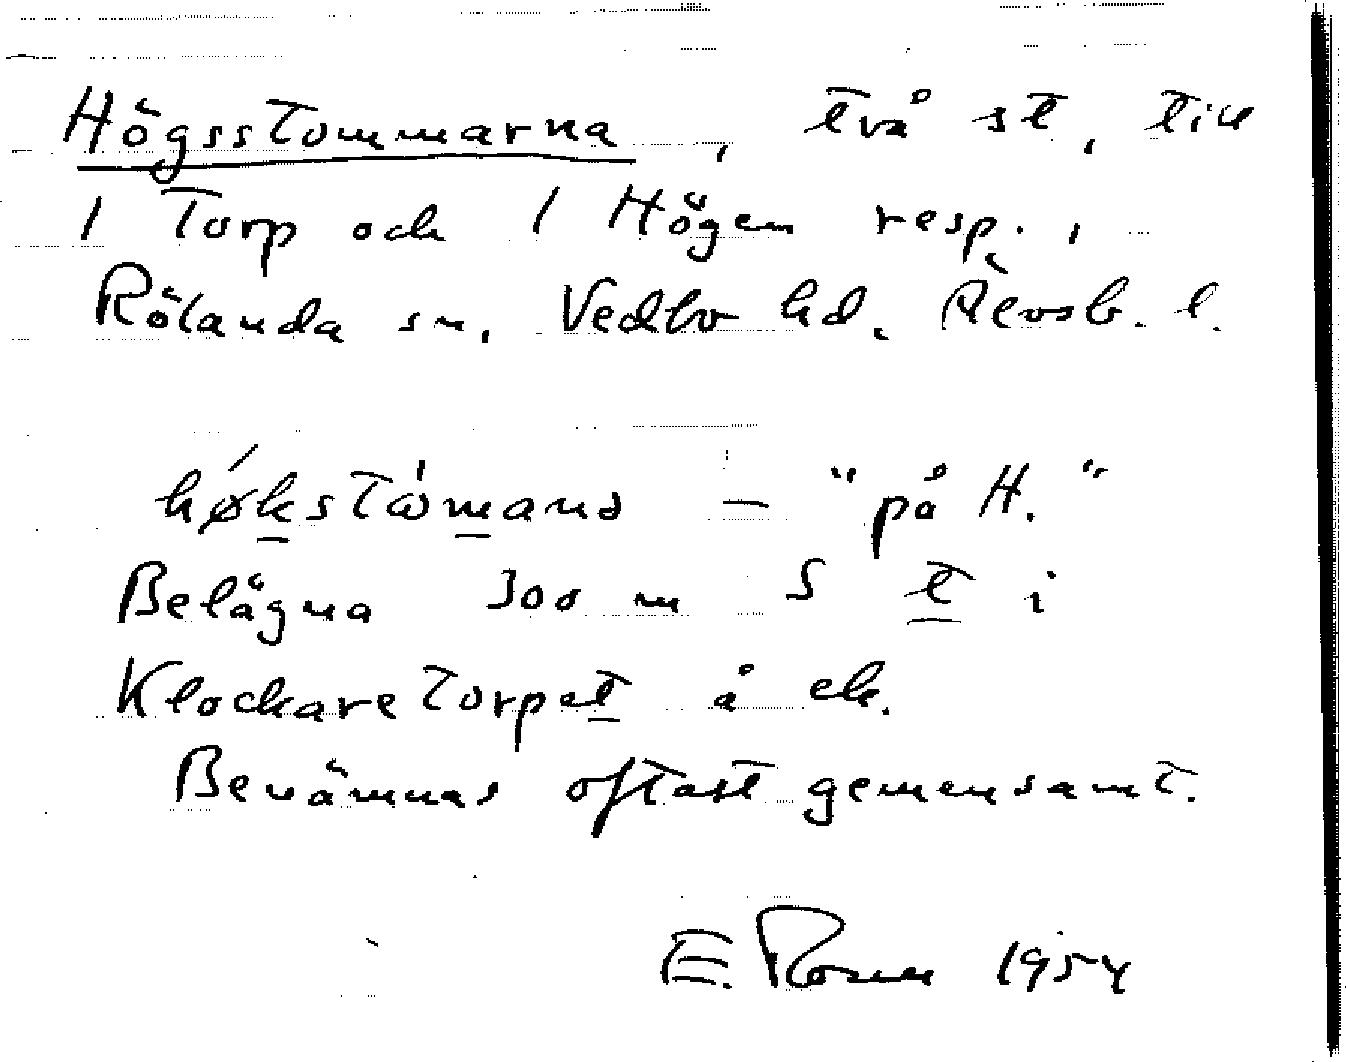 Högsstommarna, två st, till
1 Torp och 1 Högen resp.,
Rölanda sn, Vedbo hd. Älvsb. l.
— "på H."
Belägna 300 m S t i
Klockaretorpet å ek.
Benämnas oftast gemensamt.
E. Rosen 1954